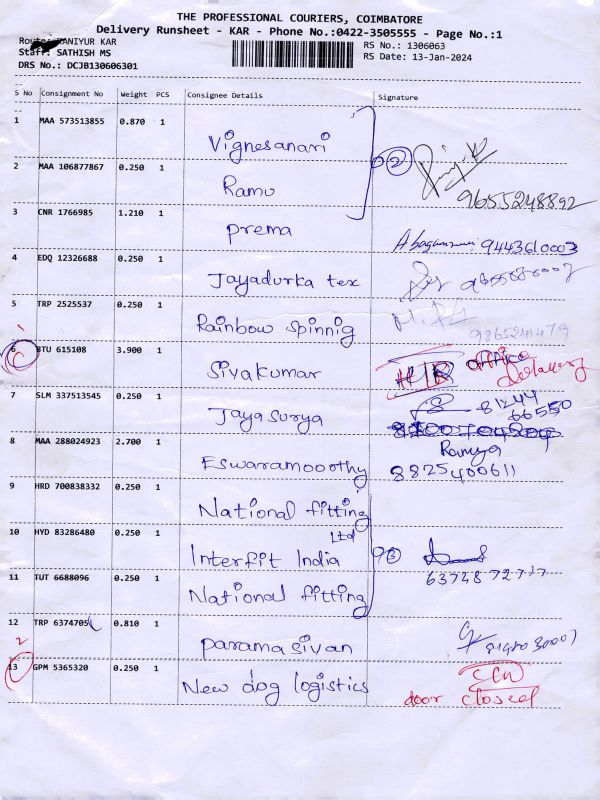 THE PROFESSIONAL COURIERS, COIMBATORE
Delivery Runsheet - KAR - Phone No.:0422-3505555 - Page No.:1
Route: KAR
RS No.: 1306063
Staff: SATHISH MS
RS Date: 13-Jan-2024
DRS No.: DCJB130606301
S No Consignment No Weight PCS Consignee Details Signature
1 MAA 573513855 0.870 1 Vignesanari
2 MAA 106877867 0.250 1 Ramu 02 9655248892
3 CNR 1766985 1.210 1 prema 9443610003
4 EDQ 12326688 0.250 1 Jayadurka tex
5 TRP 2525537 0.250 1 Rainbow spinnig
6 BTU 615108 3.900 1 Sivakumar office
7 SLM 337513545 0.250 1 Jayasurya 81244
66550
8 MAA 288024923 2.700 1 Eswaramooorthy Ramya
8825400611
9 HRD 700838332 0.250 1 National fitting
Ltd
10 HYD 83286480 0.250 1 Interfit India
11 TUT 6688096 0.250 1 National fitting
12 TRP 6374705 0.810 1 paramasivan
2
13 GPM 5365320 0.250 1 New dog logistics
door closed